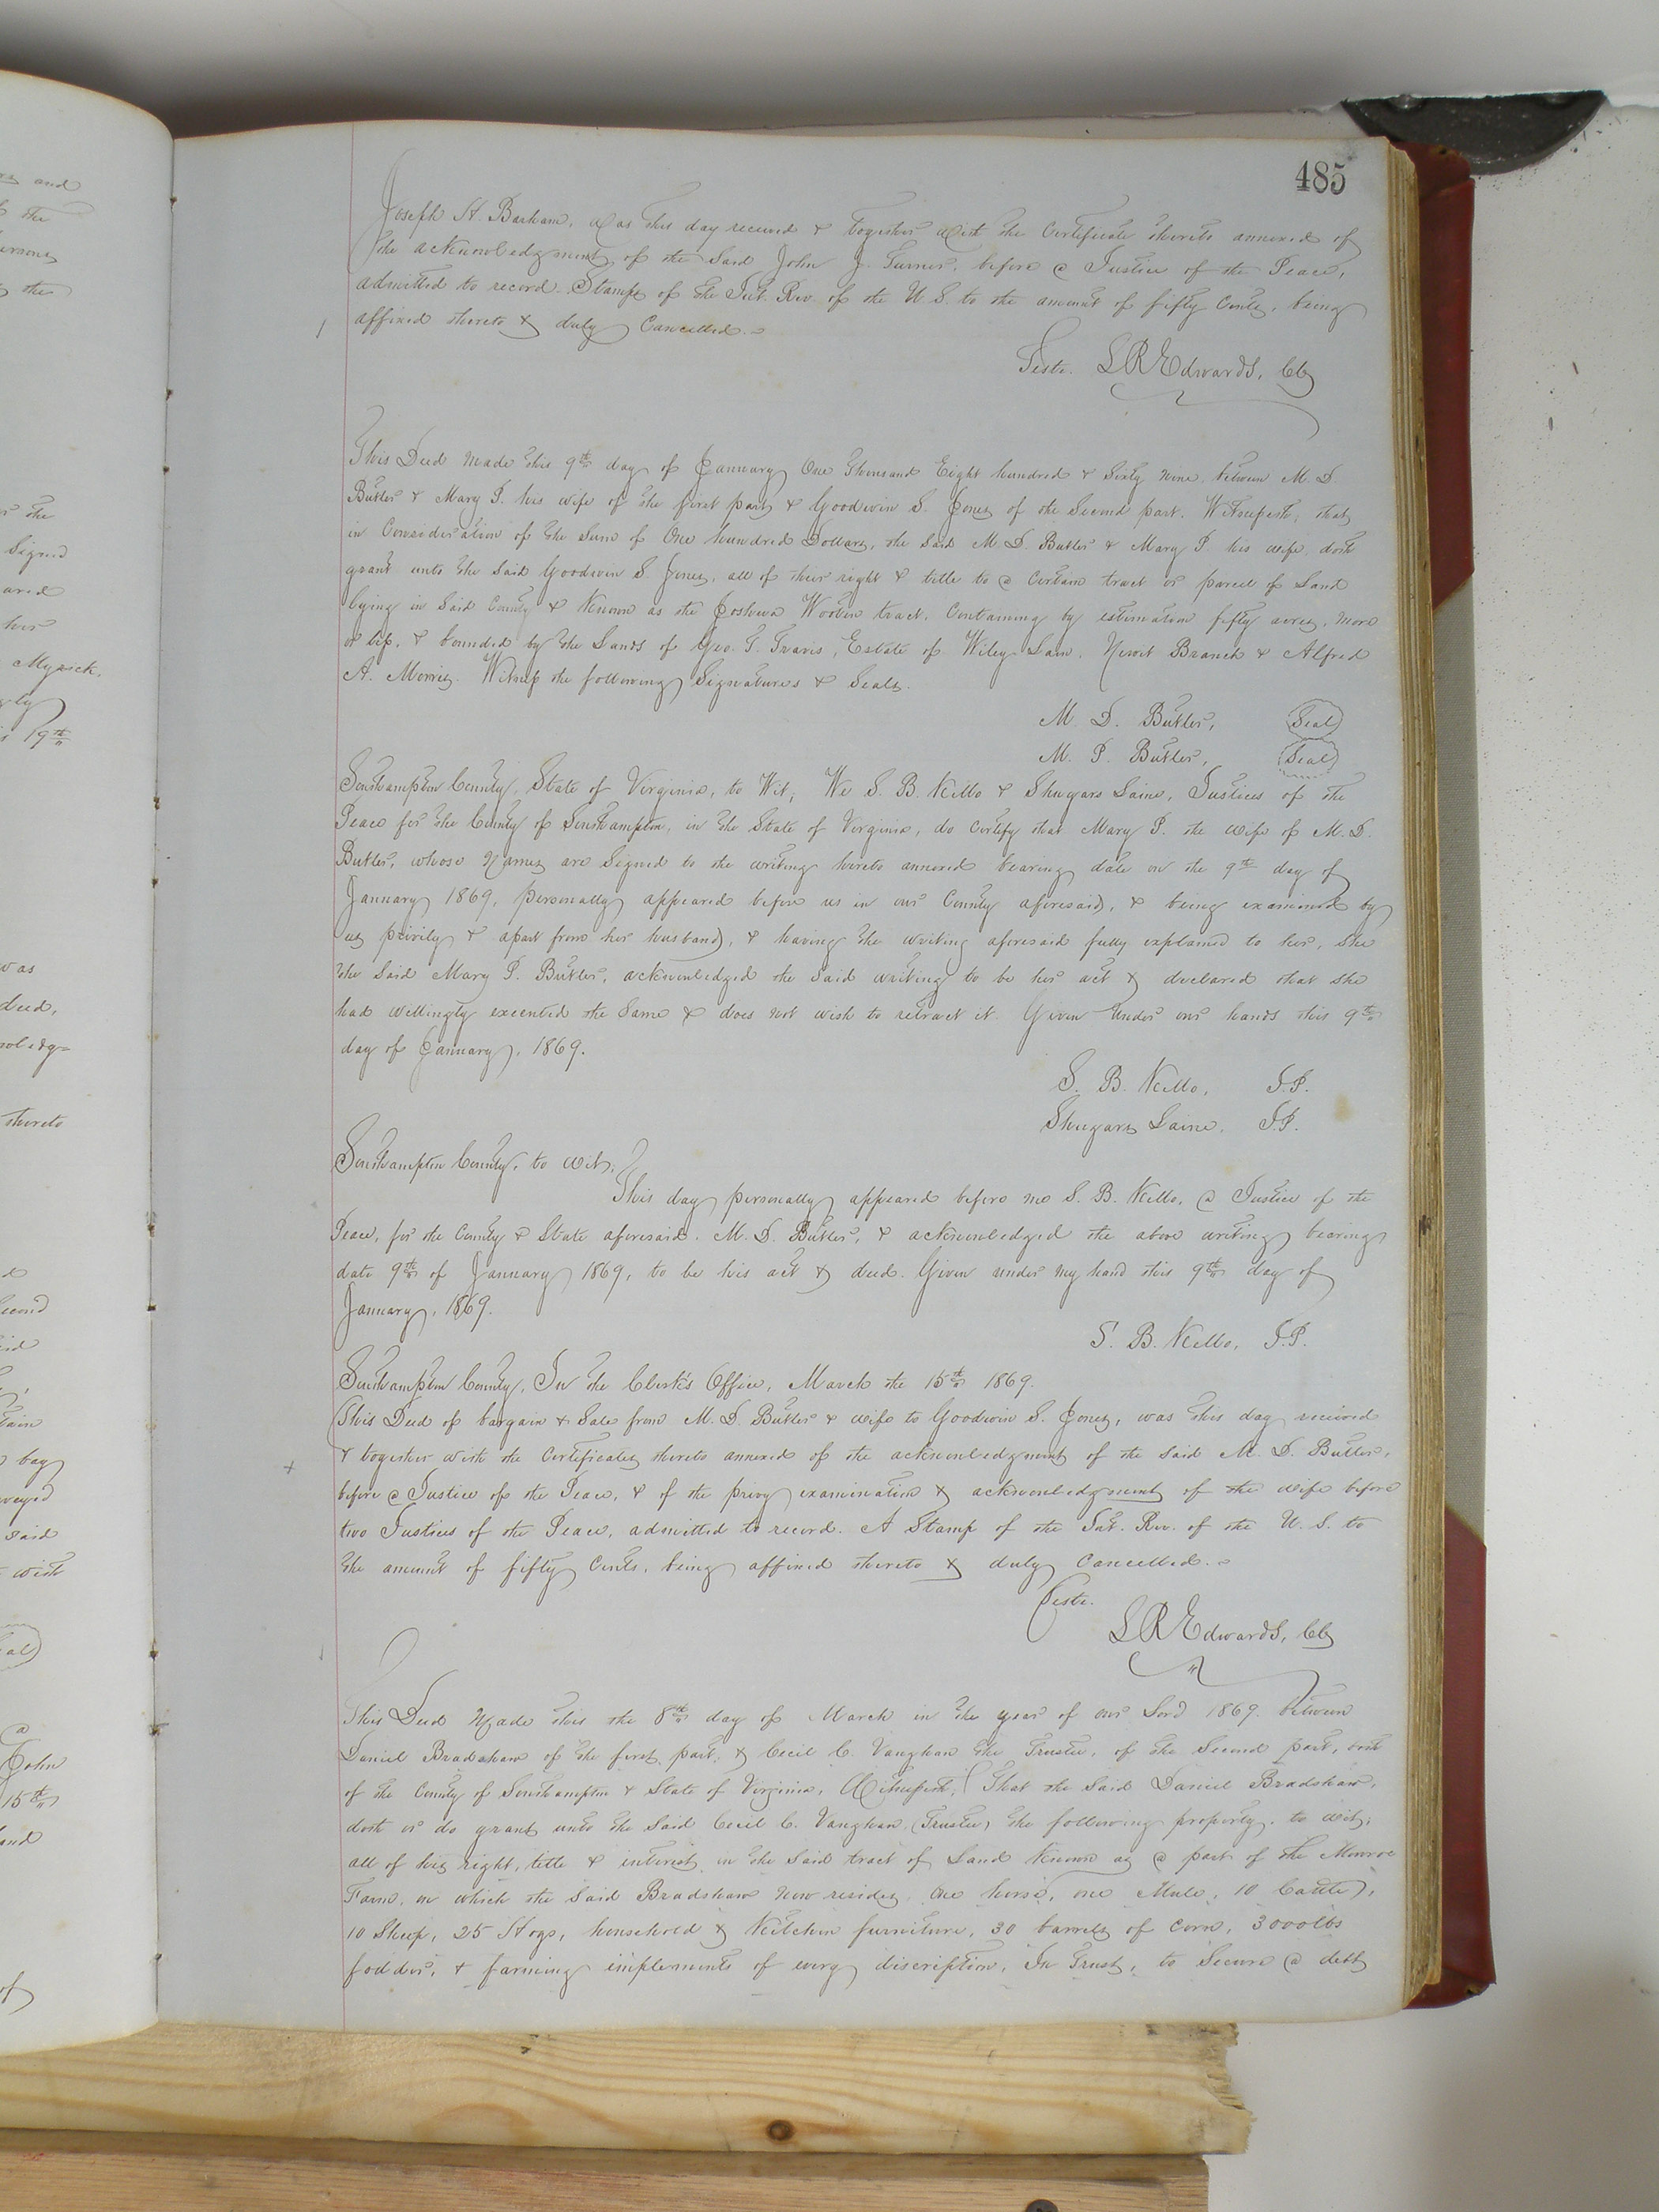 485
Joseph H. Barham, was this day received & together with the Certificate thereto annexed of
the acknowledgment of the said John J. Turner, before a Justice of the Peace,
admitted to record. Stamps of the Int. Rev. of the U. S. to the amount of fifty Cents, being
affixed thereto & duly Cancelled.
Teste. L R Edwards, Clk
This Deed made this 9th day of January One Thousand Eight hundred & Sixty nine between M. D.
Butler & Mary P. his wife of the first part & Goodwin S. Jones of the Second part. Witnesseth, that
in Consideration of the Sum of One hundred Dollars, the Said M. D. Butler & Mary P. his wife, doth
grant unto the Said Goodwin S. Jones, all of their right & title to a Certain tract or parcel of Land
lying in Said County & Known as the Joshua Wooten tract, Containing by estimation fifty acres, more
or less, & bounded by the Lands of Geo. T. Travis, Estate of Wiley Lain, Newit Branch & Alfred
A. Morris. Witness the following Signatures & Seals.
M. D. Butler, Seal
M. P. Butler, Seal
Southampton County, State of Virginia, to Wit; We S. B. Kello & Shugars Laine, Justices of the
Peace for the County of Southampton, in the State of Virginia, do Certify that Mary P. the wife of M. D.
Butler, whose Names are Signed to the writing hereto annexed bearing date on the 9th day of
January 1869, personally appeared before us in our County aforesaid, & being examined by
us privily & apart from her husband, & having the writing aforesaid fully explained to her, she
the Said Mary P. Butler, acknowledged the Said writing to be her act & declared that she
had willingly executed the Same & does not wish to retract it. Given under our hands this 9th
day of January, 1869.
S. B. Kello, J.P.
Shugars Laine, J.P.
Southampton County, to wit;
This day personally appeared before me S. B. Kello, a Justice of the
Peace, for the County & State aforesaid. M. D. Butler, & acknowledged the above writing bearing
date 9th of January 1869, to be his act & deed. Given under my hand this 9th day of
January, 1869.
S. B. Kello, J.P.
Southampton County, In the Clerk's Office, March the 15th 1869.
This Deed of bargain & Sale from M. D. Butler & wife to Goodwin S. Jones, was this day received
& together with the Certificates thereto annexed of the acknowledgment of the said M. D. Butler,
before a Justice of the Peace, & of the privy examination & acknowledgment of the wife before
two Justices of the Peace, admitted to record. A Stamp of the Int. Rev. of the U. S. to
the amount of fifty Cents, being affixed thereto & duly Cancelled.
Teste.
L R Edwards, Clk
This Deed Made this the 8th day of March in the year of our Lord 1869. between
Daniel Bradshaw of the first part, & Cecil C. Vaughan the Trustee, of the Second part, both
of the County of Southampton & State of Virginia, Witnesseth; That the Said Daniel Bradshaw,
doth or do grant unto the Said Cecil C. Vaughan (Trustee) the following property. to wit;
all of his right, title & interest in the Said tract of Land Known as a part of the Monroe
Farm, on which the Said Bradshaw now resides, One horse, one Mule, 10 Cattle,
10 Sheep, 25 Hogs, household & Keitchen furniture, 30 barrels of Corn, 3000lbs
fodder, & farming implements of every discription, In Trust, to Secure a debt